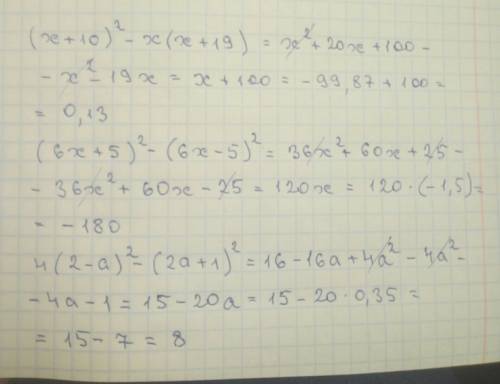 (x+10)² - x(x+19) = x² + 20x + 100 -
- x² - 19x = x + 100 = -99,87 + 100 =
= 0,13
(6x+5)² - (6x-5)² = 36x² + 60x + 25 -
- 36x² + 60x - 25 = 120x = 120 · (-1,5) =
= -180
4(2-a)² - (2a+1)² = 16 - 16a + 4a² - 4a² -
- 4a - 1 = 15 - 20a = 15 - 20 · 0,35 =
= 15 - 7 = 8